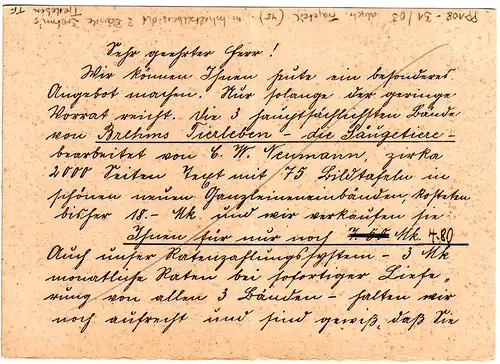 Sehr geehrter Herr!
Wir können Ihnen heute ein besonderes
Angebot machen. Nur solange der geringe
Vorrat reicht. Die 3 hauptsächlichsten Bände
von Brehms Tierleben - die Säugetiere -
bearbeitet von C. W. Neumann, zirka
2000 Seiten Text mit 75 Bildtafeln in
schönen neuen Ganzleineneinbänden, kosteten
bisher 18.- Mk. und wir verkaufen sie
Ihnen für nur noch Mk. 4.80
Auch unser Ratenzahlungssystem - 3 Mk
monatliche Raten bei sofortiger Liefe-
rung von allen 3 Bänden - halten wir
noch aufrecht und sind gewiß, daß Sie